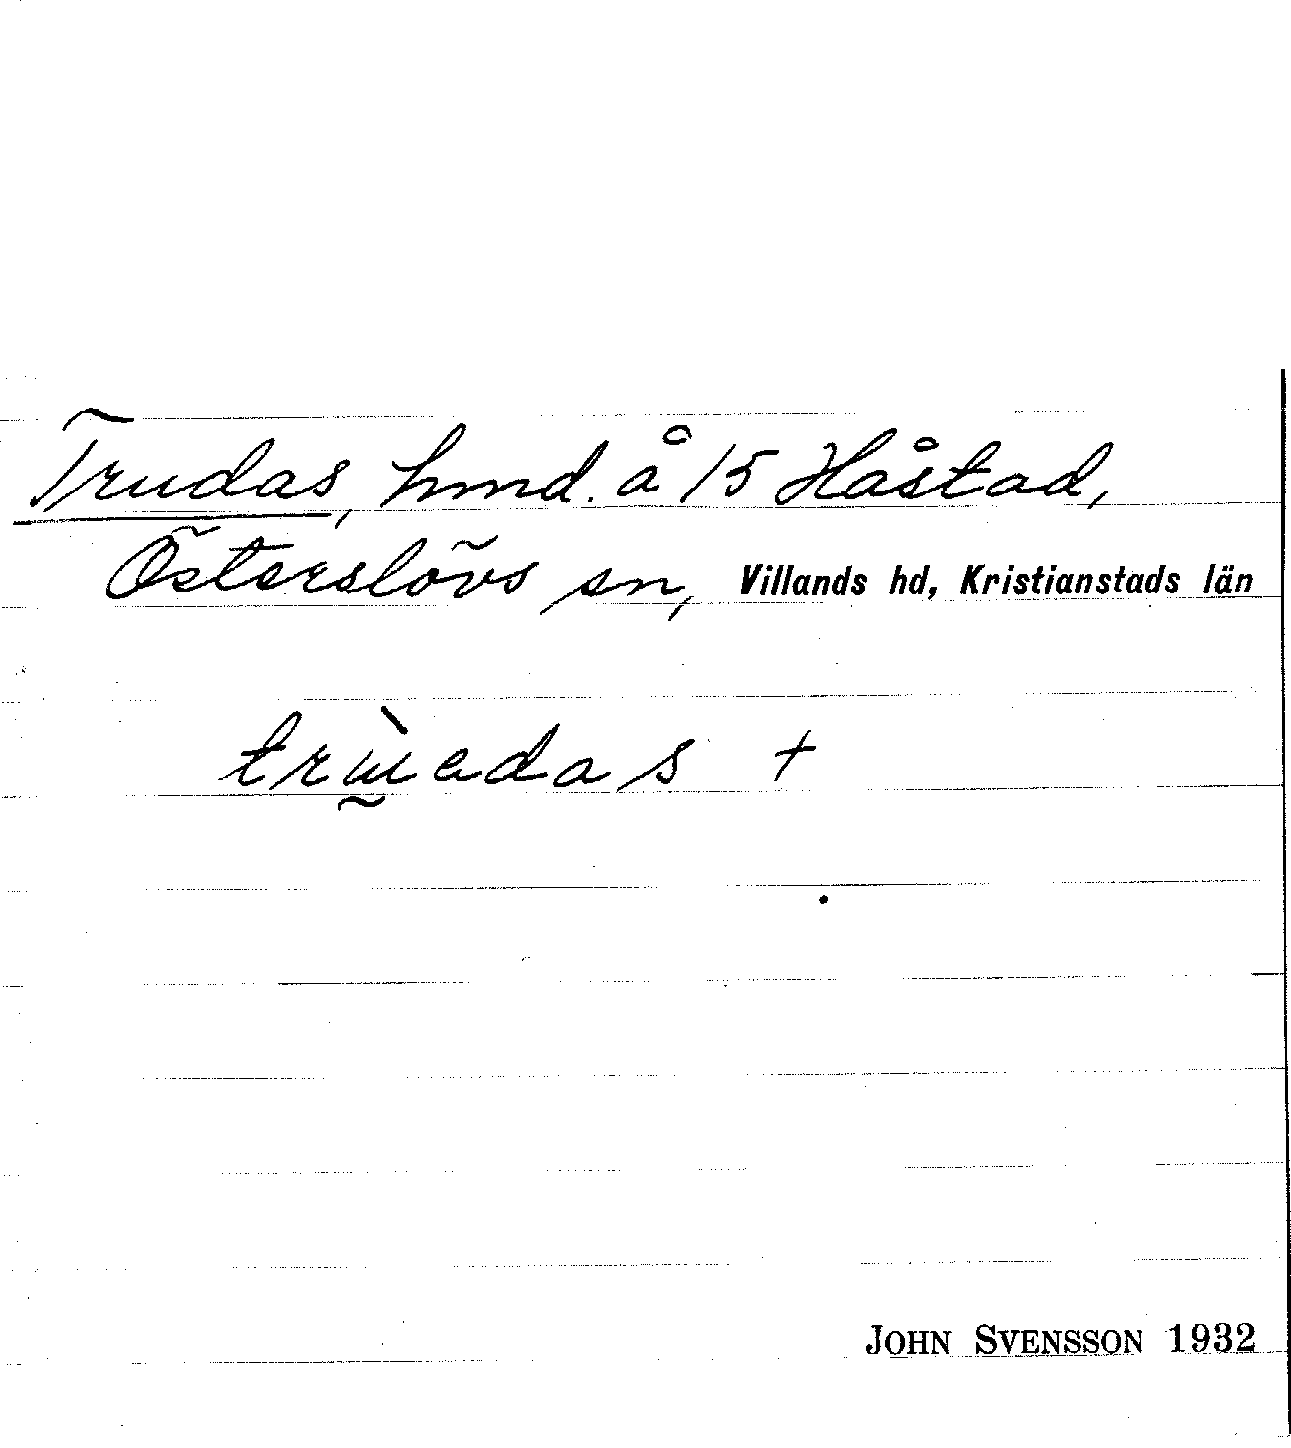 Trudas, hmd. å 15 Håstad,
Österslövs sn, Villands hd, Kristianstads län
trɯ̰̀adas +
JOHN SVENSSON 1932